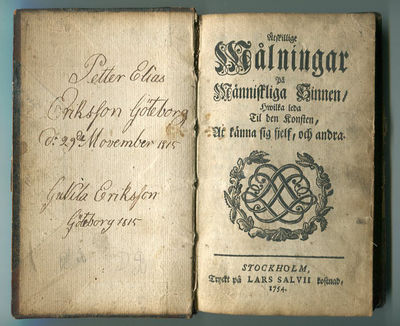 Petter Elias
Eriksson Göteborg
d: 29de November 1815
Eriksson
Göteborg 1815
Åtskillige
Målningar
På
Menniskliga Sinnen,
Hwilka leda
Til den Konsten,
At känna sig sjelf, och andra.
STOCKHOLM,
Tryckt på LARS SALVII kostnad,
1754.